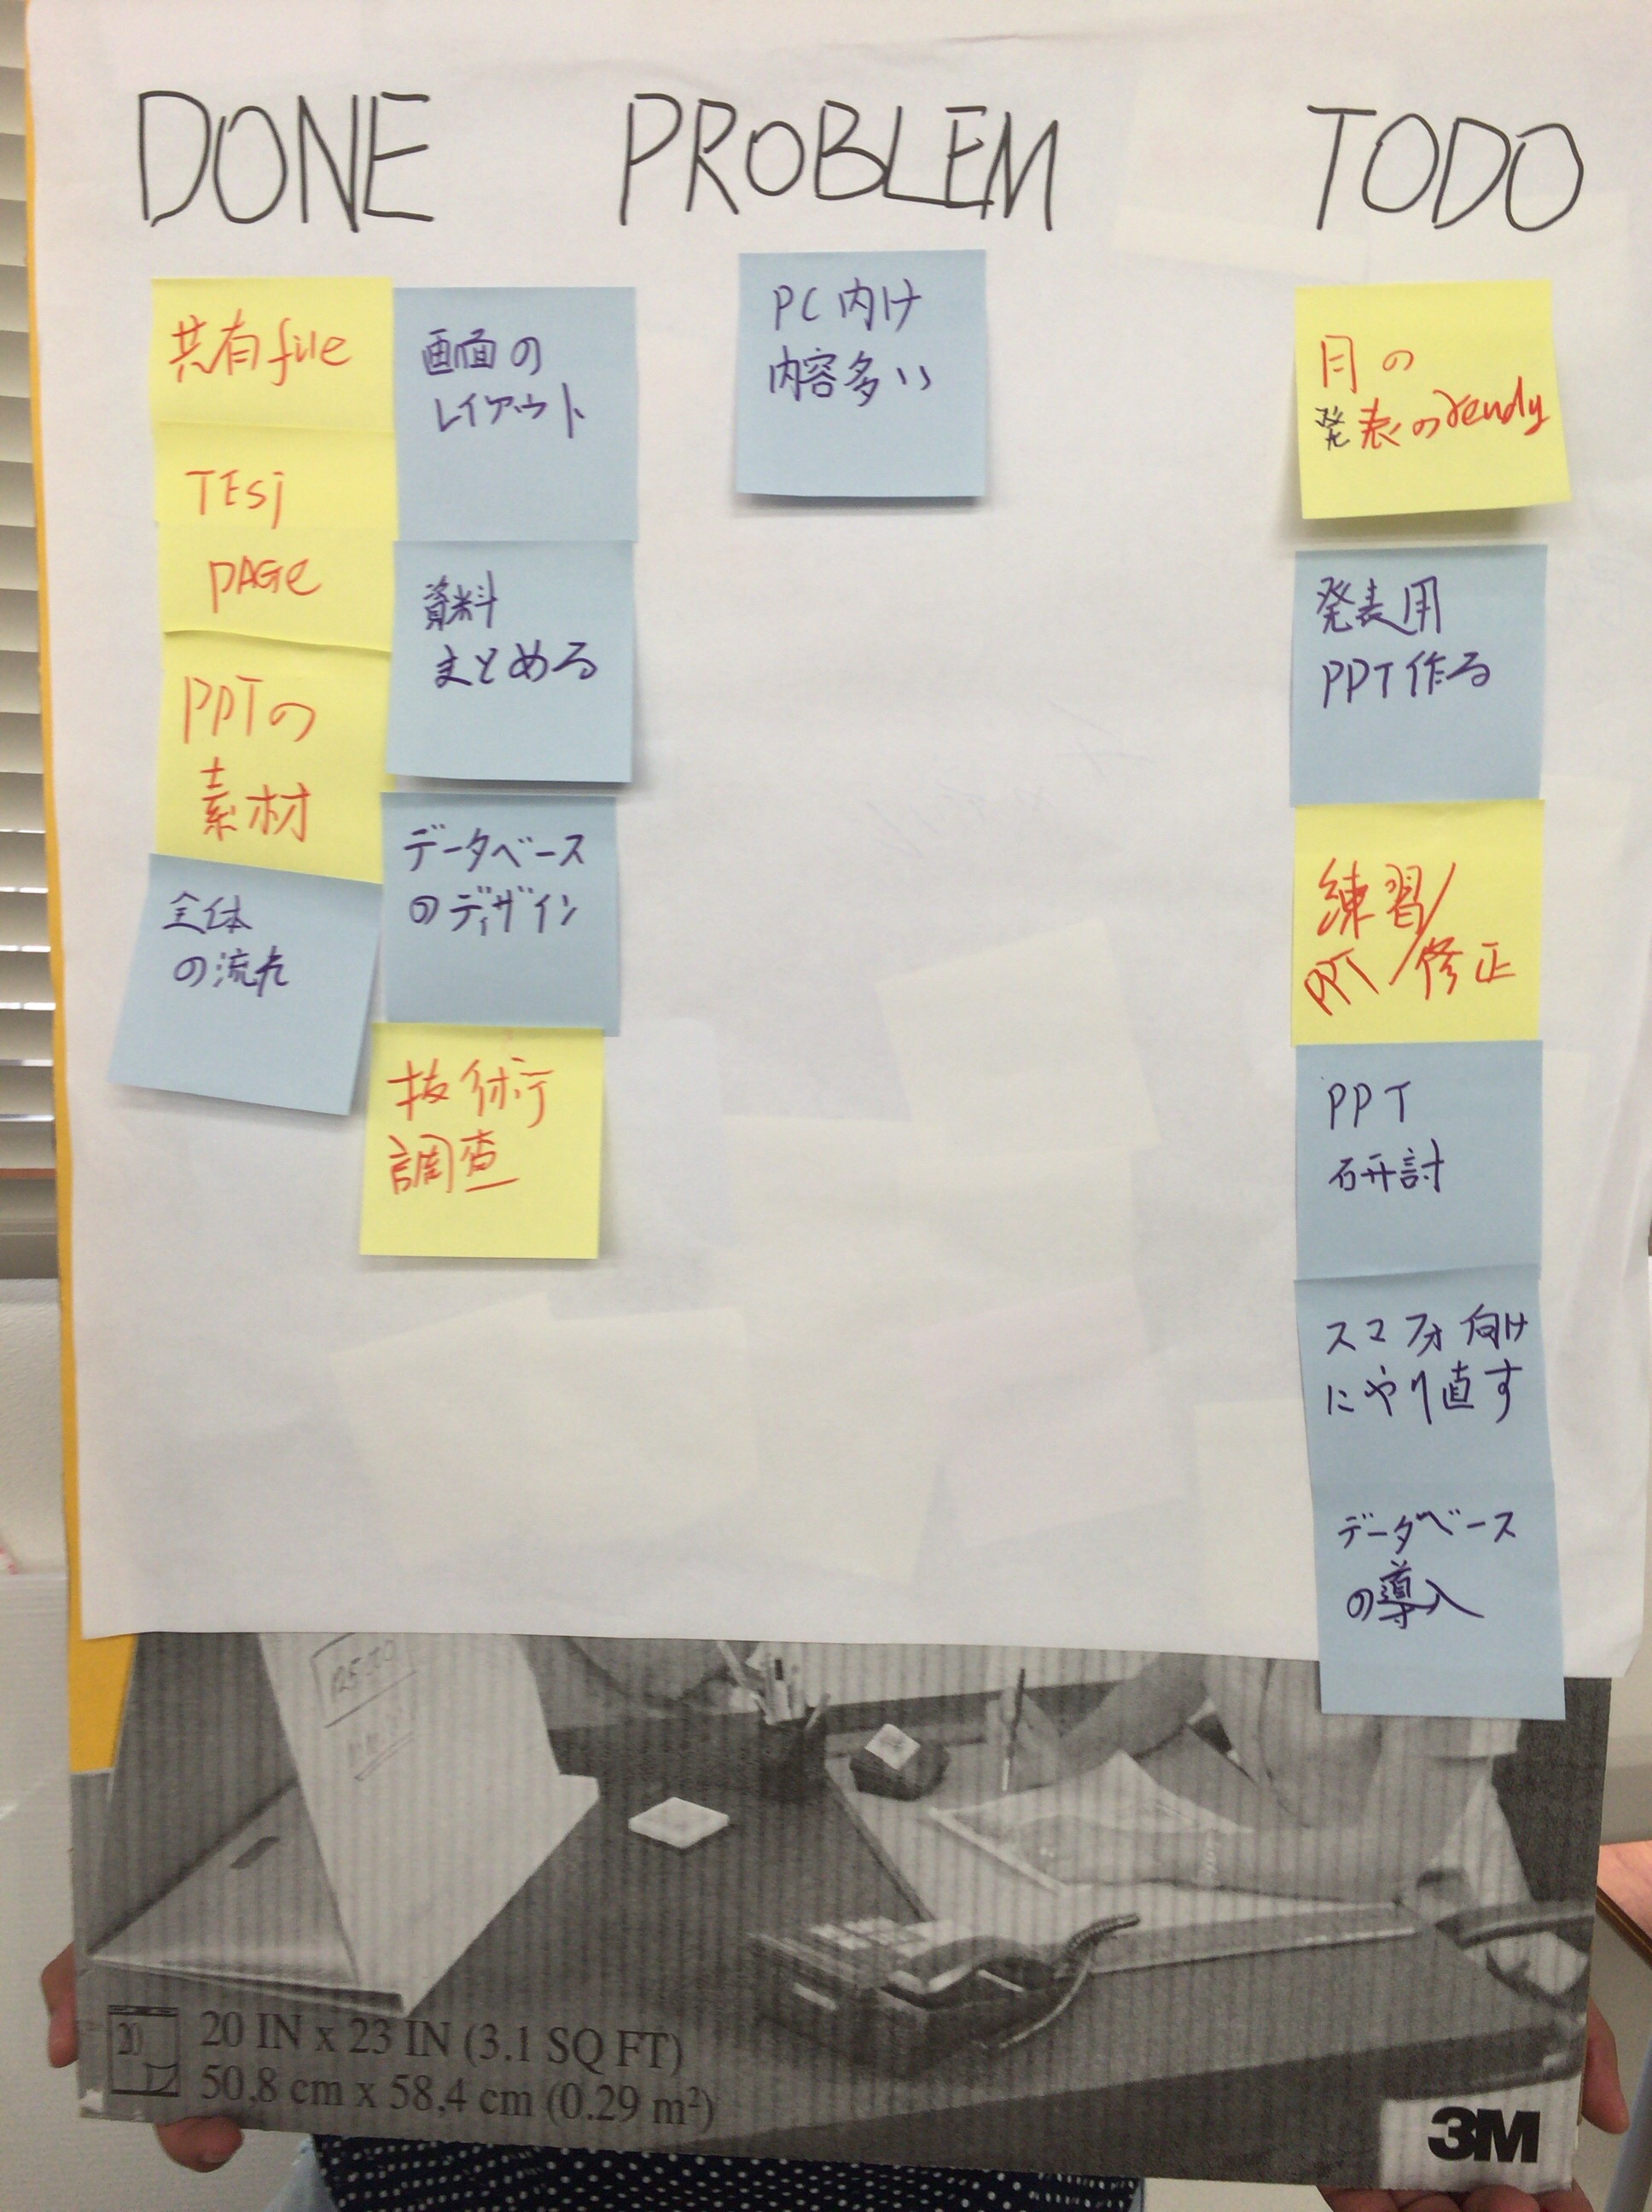 DONE PROBLEM TODO
共有file
TEST
PAGE
PPTの
素材
全体
の流れ
画面の
レイアウト
資料
まとめる
データベース
のデザイン
技術
調査
PC向け
内容多い
月の
発表のready
発表用
PPT作る
練習/
PPT/修正
PPT
研討
スマフォ向け
にやり直す
データベース
の導入
20
20 IN x 23 IN (3.1 SQ FT)
50,8 cm x 58,4 cm (0.29 m²)
3M